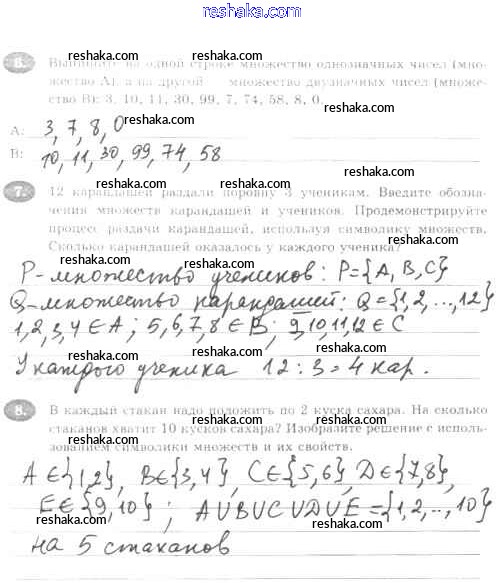 reshaka.com
6. Выпишите на одной строке множество однозначных чисел (мно-
жество A), а на другой множество двузначных чисел (множе-
ство B): 3, 10, 11, 30, 99, 7, 74, 58, 8, 0.
reshaka.com reshaka.com
reshaka.com reshaka.com
A: 3, 7, 8, 0
reshaka.com
B: 10, 11, 30, 99, 74, 58
reshaka.com
7. 12 карандашей раздали поровну 3 ученикам. Введите обозна-
чения множеств карандашей и учеников. Продемонстрируйте
процесс раздачи карандашей, используя символику множеств.
Сколько карандашей оказалось у каждого ученика?
reshaka.com reshaka.com
reshaka.com reshaka.com
P-множество учеников: P={A, B, C}
reshaka.com reshaka.com
Q-множество карандашей: Q={1,2,..,12}
1,2,3,4∈A; 5,6,7,8∈B; 9,10,11,12∈C
reshaka.com reshaka.com
У каждого ученика 12:3=4 кар.
reshaka.com
8. В каждый стакан надо положить по 2 куска сахара. На сколько
стаканов хватит 10 кусков сахара? Изобразите решение с исполь-
зованием символики множеств и их свойств.
reshaka.com reshaka.com
reshaka.com reshaka.com
A∈{1,2}, B∈{3,4}, C∈{5,6}, D∈{7,8},
reshaka.com
E∈{9,10}; A∪B∪C∪D∪E={1,2,..,10}
reshaka.com reshaka.com
на 5 стаканов
reshaka.com